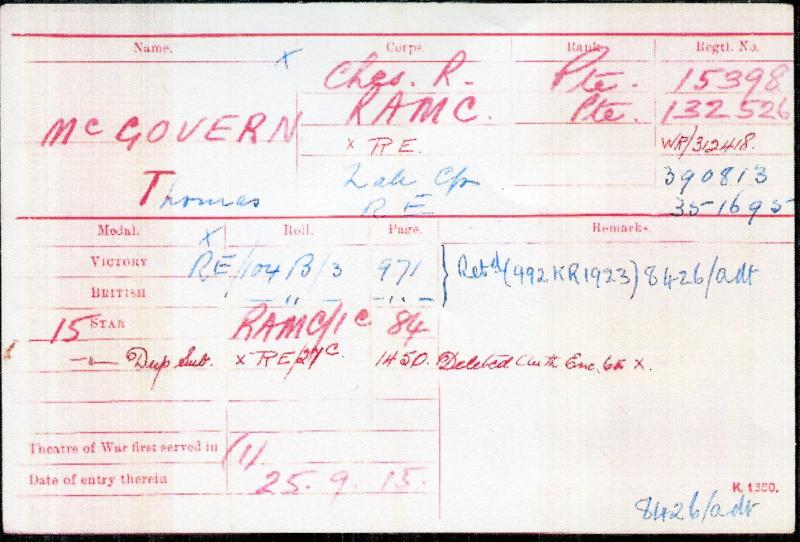 Name. Corps. Rank. Regtl. No.
x Ches. R. Pte. 15398
McGOVERN RAMC. Pte. 132526
x RE. WR/312418.
Thomas Lab Cps 390813
RE 351695
Medal. Roll. Page. Remarks.
x
VICTORY RE/104 B/3 971 } Retd (992 KR 1923) 8426/adt
BRITISH — „ — — „ —
15 STAR RAMC/1C 84
—„— Dup Sub. x RE/27C. 1450. Deleted Auth Enc. 6 x.
Theatre of War first served in (1)
Date of entry therein 25. 9. 15.
K. 1380.
8426/adt